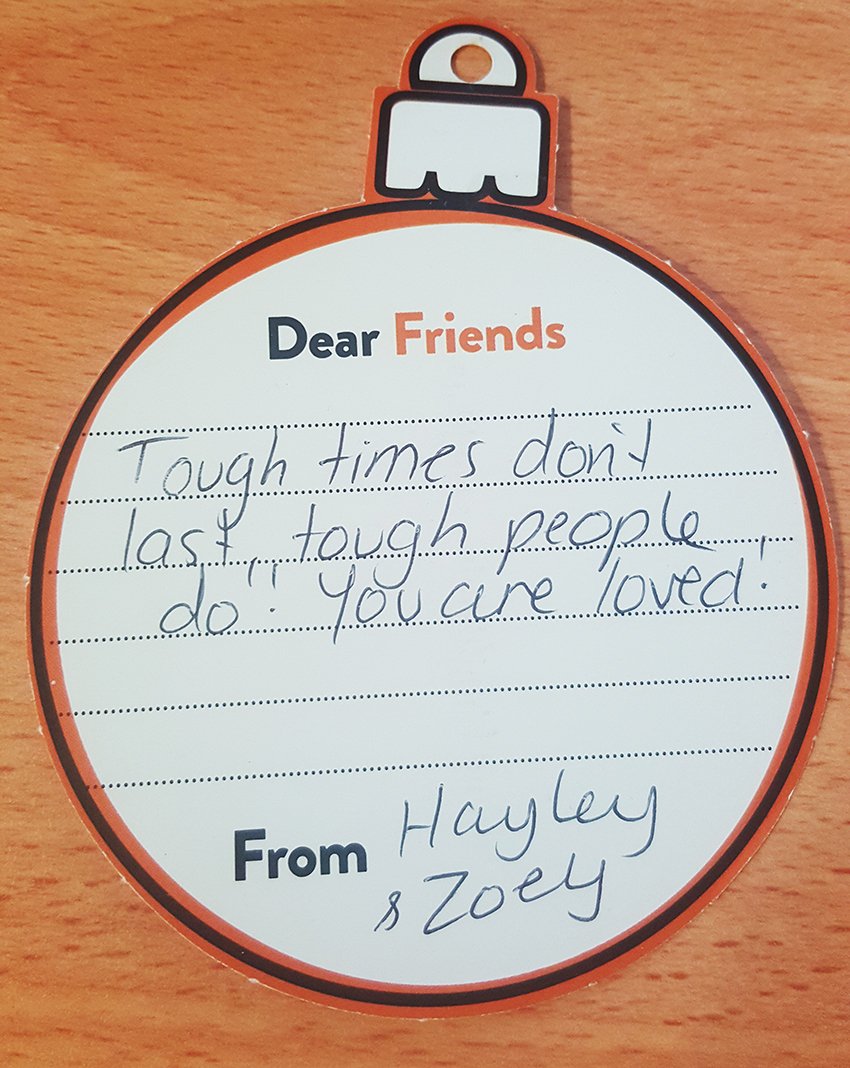 Dear Friends
Tough times don't
last, tough people
do! You are loved!
From Hayley
& Zoey